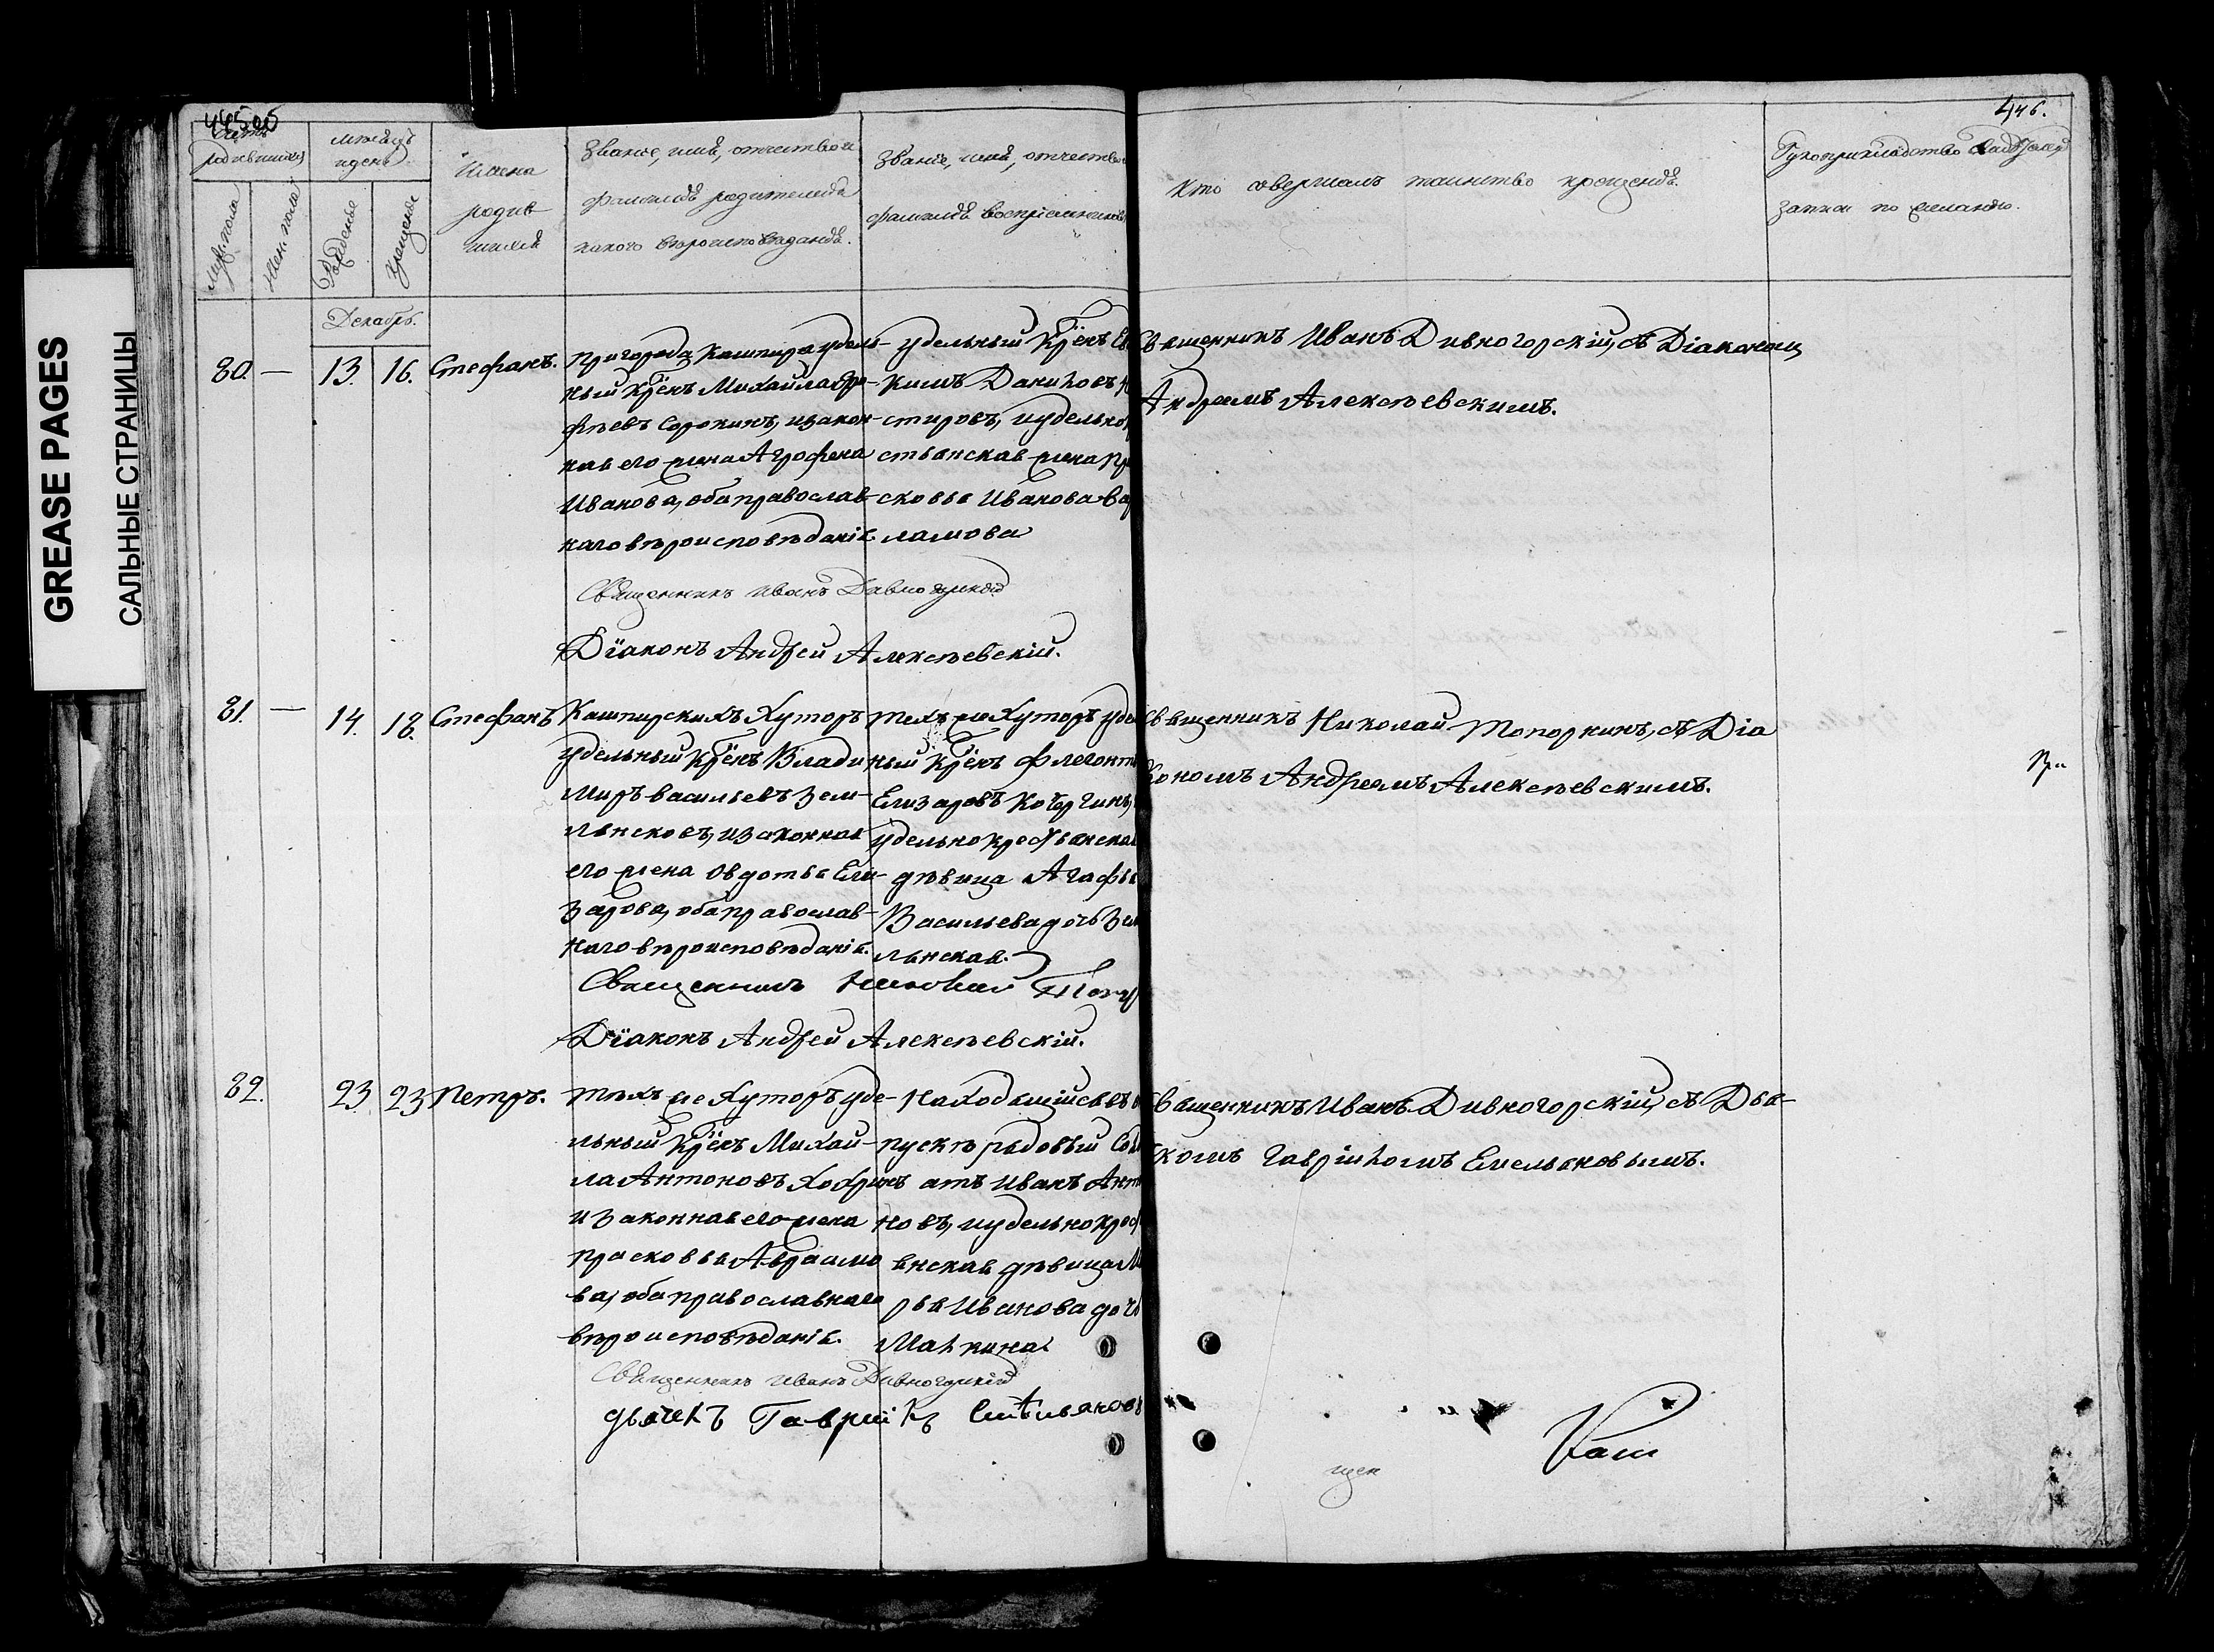 GREASE PAGES
САЛЬНЫЕ СТРАНИЦЫ
446.
Счетъ
родившихся
мѣсяцъ
и день
Муж. пола
Жен. пола
Рожденіе
Крещеніе
Имена
родив-
шихся
Званіе, имя, отчество и
фамилія родителей и
какого вѣроисповѣданія.
Званіе, имя, отчество
фамилія воспріемниковъ
Кто совершалъ таинство крещенія.
Рукоприкладство свидѣтелей
записи по желанію.
Декабрь.
80. — 13. 16. Стефанъ.
Пригорода Кашпира удѣль-
ный кр̃енъ Михайла
фѣевъ Сорокинъ, и закон-
ная его жена Агрофена
Иванова, оба православ-
наго вѣроисповѣданія.
удельный кр̃енъ
кимъ Даниловъ
стировъ, и удельно
стьянская жена Пр
сковья Иванова Ва
ламова
Священникъ Иванъ Дивногорскій, съ Діакономъ
Андреемъ Алексѣевскимъ.
Священникъ Иванъ Дивногорскій
Діаконъ Андрей Алексѣевскій.
81. — 14. 18. Стефанъ
Кашпирскихъ Хуторъ
удельный кр̃енъ Влади
миръ Васильевъ Зем-
лянсковъ, и законная
его жена Овдотья Ели-
зарова, оба православ-
наго вѣроисповѣданія.
техъ же Хуторъ уде
ный кр̃енъ Флегонт
Елизаровъ Кочергинъ,
удельно крестьянская
дѣвица Агафья
Васильева дочь Зем
лянская.
Священникъ Николай Топоркинъ, съ Діа
кономъ Андреемъ Алексѣевскимъ.
Священникъ Николай Топор
Діаконъ Андрей Алексѣевскій.
82. 23. 23 Петръ.
Тѣхъ же Хуторъ уде-
льный кр̃енъ Михай-
ла Антоновъ Хохринъ
и законная его жена
Прасковья Авраамо
ва, оба православнаго
вѣроисповѣданія.
Находящійся въ
пускѣ рядовый Сол
атъ Иванъ Анто
новъ, и удельно крест
янская дѣвица М
рья Иванова дочь
Малкина
Священникъ Иванъ Дивногорскій, съ Дья-
комъ Гавріиломъ Емельяновымъ.
Священникъ Иванъ Дивногорскій
дьячекъ Гавріилъ Емельяновъ
щен
Каш